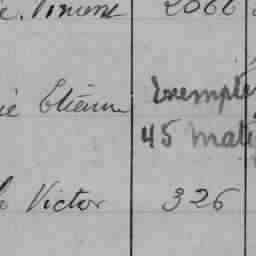 Vincent 2066
Etienne Exempté
45 mat
Victor 326